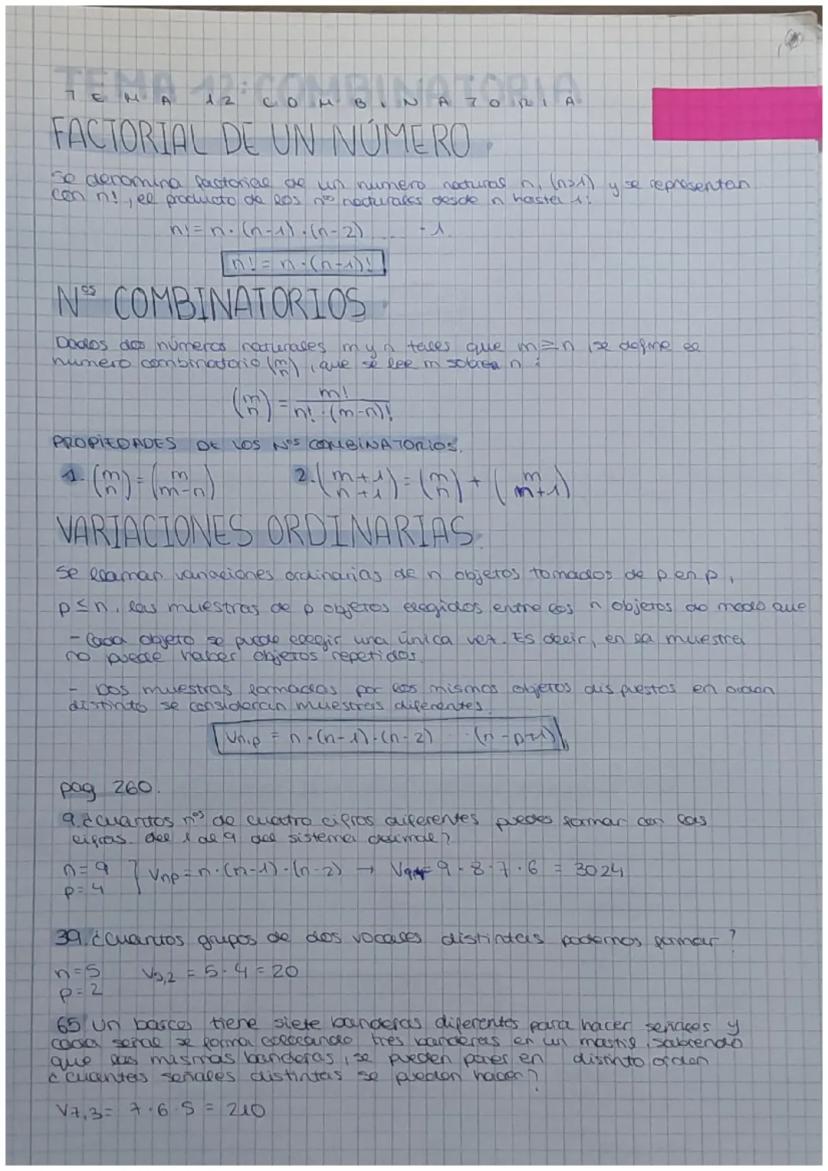 TEMA 12: COMBINATORIA
TEMA 12 COMBINATORIA
FACTORIAL DE UN NÚMERO
Se denomina factorial de un numero natural n, (n>1) y se representan
con n!, el producto de los nº naturales desde n hasta 1:
n! = n · (n-1) · (n-2) ... · 1
n! = n · (n-1)!
Nºˢ COMBINATORIOS
Dados dos números naturales m y n tales que m≥n, se define el
numero combinatorio (m/n), que se lee m sobre n:
(m/n) = m! / n! · (m-n)!
PROPIEDADES DE LOS Nºˢ COMBINATORIOS.
1. (m/n) = (m/m-n) 2. (m+1/n+1) = (m/n) + (m/m+1)
VARIACIONES ORDINARIAS
Se llaman variaciones ordinarias de n objetos tomados de p en p,
p ≤ n, las muestras de p objetos elegidos entre los n objetos do modo que
- Cada objeto se puede elegir una única vez. Es decir, en la muestra
no puede haber objetos repetidos.
- Dos muestras formadas por los mismos objetos dispuestos en orden
distinto se consideran muestras diferentes.
Vn,p = n · (n-1) · (n-2) ... (n-p+1)
pag 260.
9. ¿cuantos nºˢ de cuatro cifras diferentes puedes formar con las
cifras del 1 al 9 del sistema decimal?
n=9
p=4 } Vnp = n · (n-1) · (n-2) → V9,4= 9 · 8 · 7 · 6 = 3024
39. ¿cuantos grupos de dos vocales distintas podemos formar?
n=5 V5,2 = 5 · 4 = 20
p=2
65 Un barco tiene siete banderas diferentes para hacer señales y
cada señal se forma colocando tres banderas en un mastil, sabiendo
que las mismas banderas, se pueden poner en distinto orden
¿cuantas señales distintas se pueden hacer?
V7,3= 7 · 6 · 5 = 210